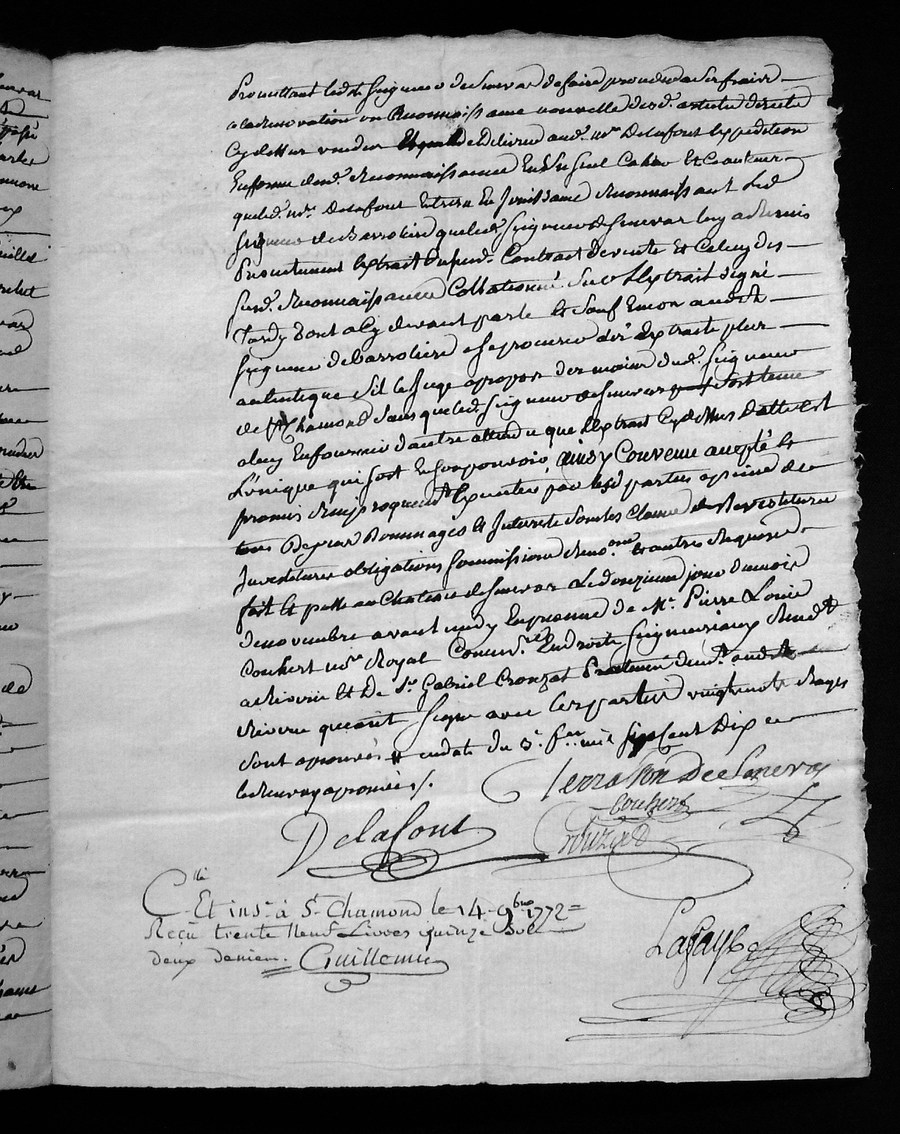 Promettant ledt Seigneur de Senevas de faire proceder a ses fraix
a la Renovation ou Reconnoissance nouvelle desd. articles directe
cy dessus vendus et delivrer aud. Mr. Delafont Expedition
En forme desd. Reconnoissances En Un seul Cahier Et
que led. Mr. Delafont Entrera En Jouissance Reconnoissant Led
Seigneur de Barroliere que led. Seigneur de Senevas luy a Remis
Presentement Extrait dusd. Contract de vente Et Celuy des
susd. Reconnoissances Collationné Sur l'Extrait signé
Tardy dont a Cy devant parlé Et Sauf Encor audit
Seigneur de Barroliere a se procurer des Extraits plus
autentique Sil le Juge apropos des mains dud. Seigneur
de St Chamond Sans que led. Seigneur de Senevas soit tenu
a luy En fournir d'autre attendu que l'Extrait Cy dessus datté est
L'unique qui soit En son pouvoir, ainsy Convenu accepté Et
promis Executer par lesd parties a peine de
tous Depens Dommages Et Interests Sous les Clauses de Revestiture
Investiture obligations Soumissions Renon. Et autres Requises
fait Et passé au Chateau de Senevas Le donzieme jour du mois
de novembre avant midy En presence de Me. Pierre Louis
Couhert nore Royal Commre. En droits Seigneuriaux Residt
a Riverie Et De Sr. Gabriel Crouzat demt. audit
Riverie qui ont Signé avec les parties vingt mots Rayés
sont aprouvés en date du 3e. fer. mil sept cent Dix
le Renvoy aprouvés /.
Terrasson De Senevas
Couhert
Delafont
Crouzat
C.lé Et ins. à St Chamond le 14 9bre 1772
Reçu trente Neuf Livres quinze Sols
deux deniers. Guillemin
Lafayle